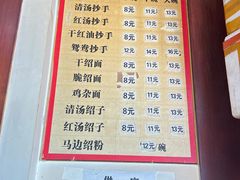 清汤抄手 8元 11元 13元
红汤抄手 8元 11元 13元
干红油抄手 8元 11元 13元
鸳鸯抄手 12元 14元 16元
干绍面 8元 11元 13元
脆绍面 8元 11元 13元
鸡杂面 8元 11元 13元
清汤绍子 8元 11元 13元
红汤绍子 8元 11元 13元
马边绍粉 12元/碗